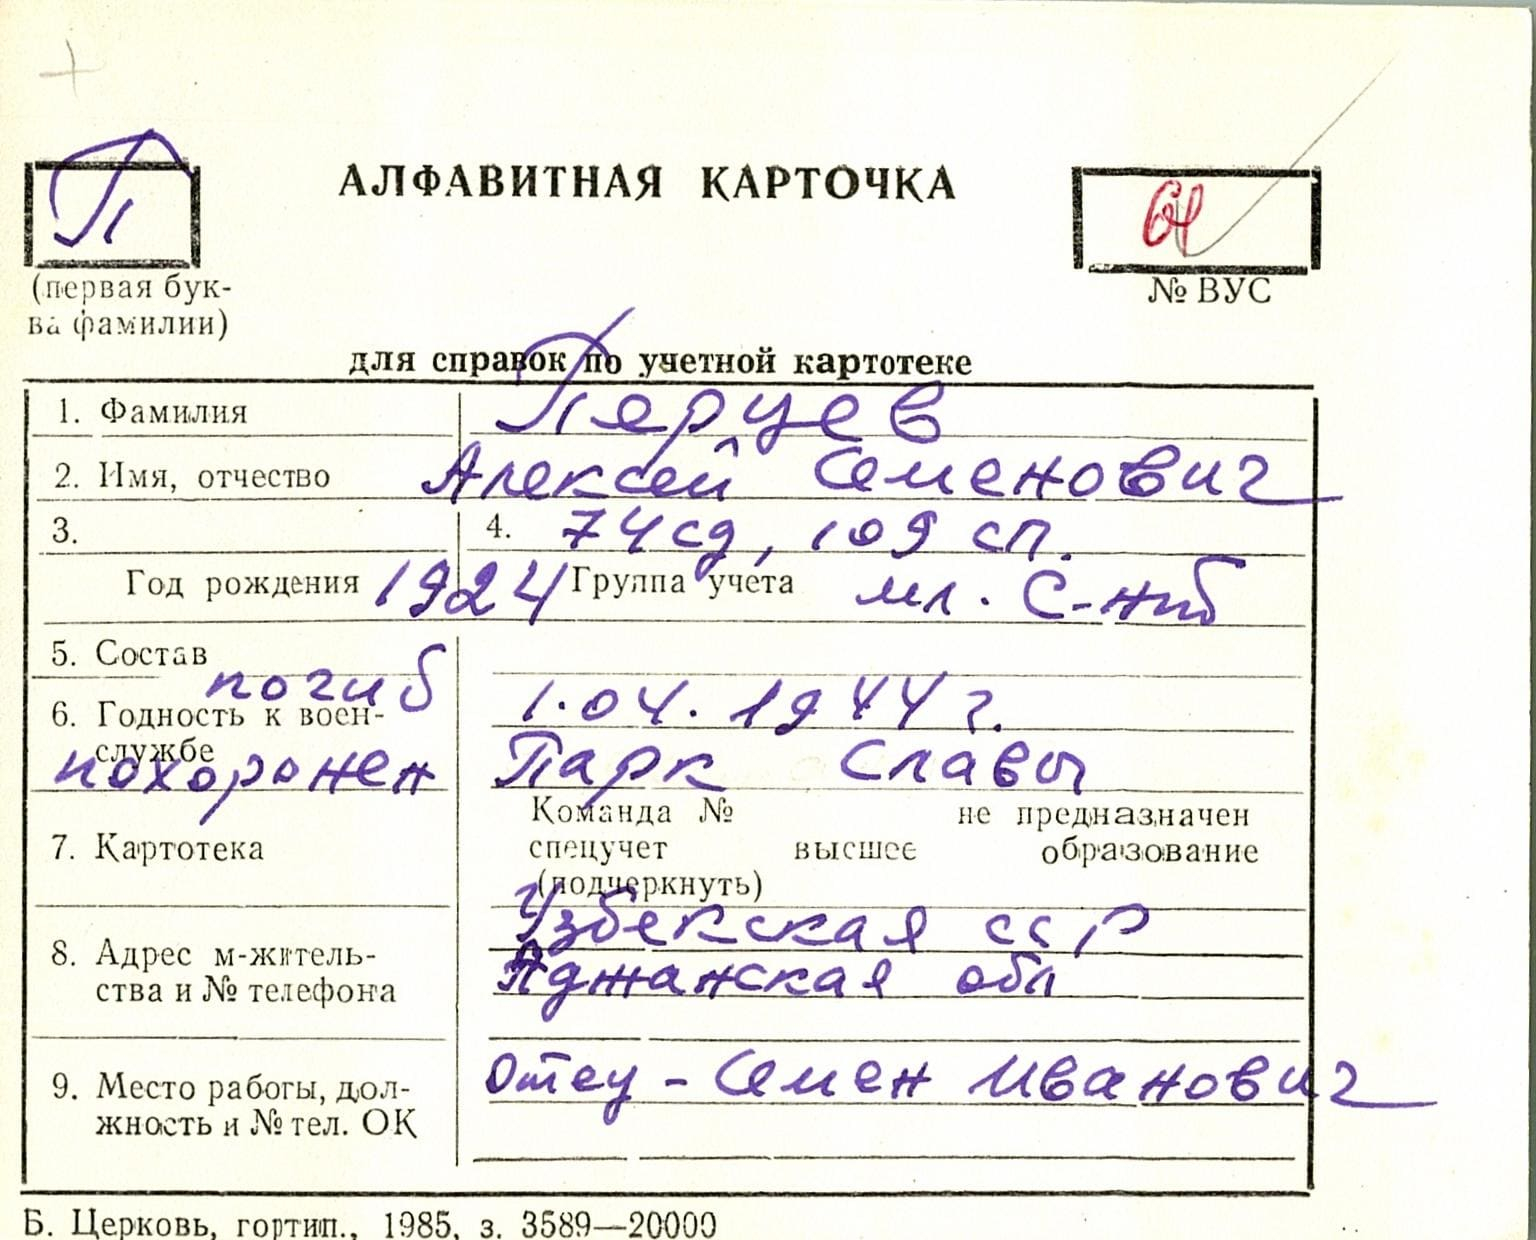 П
АЛФАВИТНАЯ КАРТОЧКА
(первая бук-
ва фамилии)
№ ВУС
для справок по учетной картотеке
1. Фамилия Перцев
2. Имя, отчество Алексей Семенович
3. 4. 74 сд, 109 сп.
Год рождения 1924 Группа учета мл. с-нт
5. Состав
погиб 1.04.1944 г.
6. Годность к воен-
службе
похоронен Парк Славы
Команда № не предназначен
7. Картотека спецучет высшее образование
(подчеркнуть)
Узбекская сср
8. Адрес м-житель-
ства и № телефона
Аджанская обл
9. Место работы, дол-
жность и № тел. ОК
Отец - Семен Иванович
Б. Церковь, гортип., 1985, з. 3589—20000